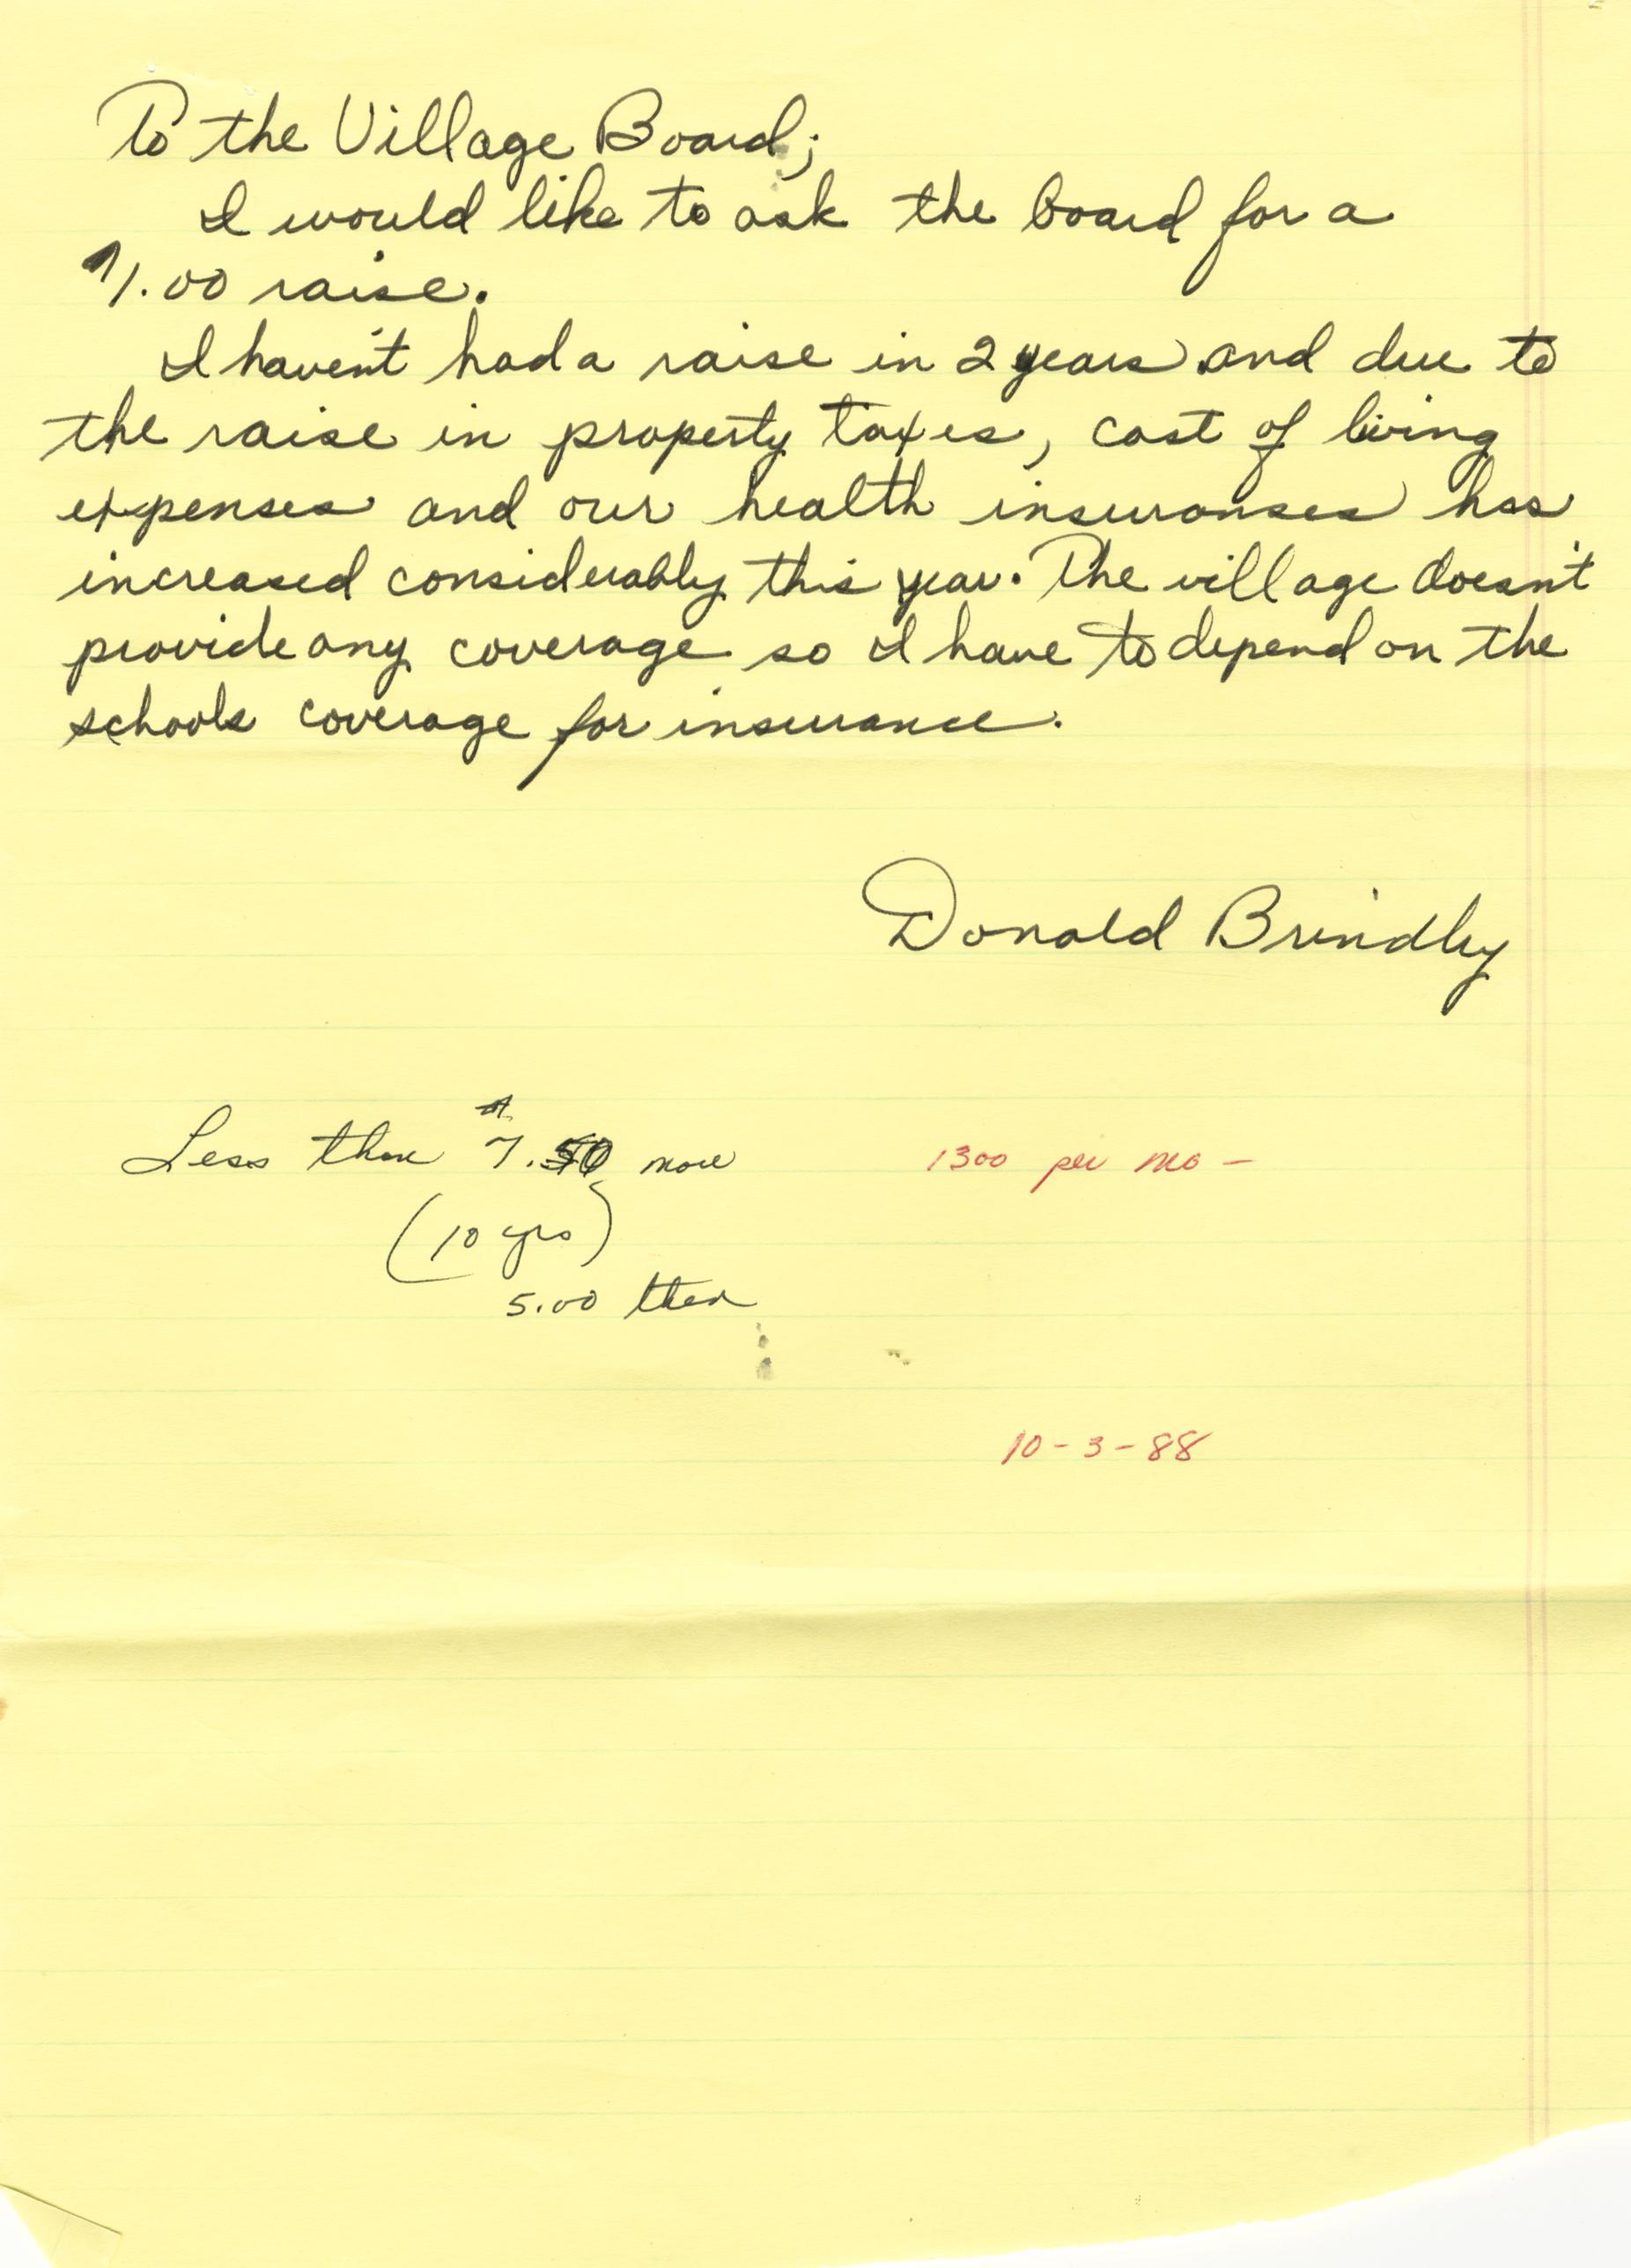 To the Village Board;
I would like to ask the board for a
$1.00 raise.
I haven't had a raise in 2 years and due to
the raise in property taxes, cost of living
expenses and our health insuranses has
increased considerably this year. The village doesn't
provide any coverage so I have to depend on the
schools coverage for insurance.
Donald Brindley
Less than $7.50 now
1300 per mo -
(10 yrs)
5.00 then
10-3-88